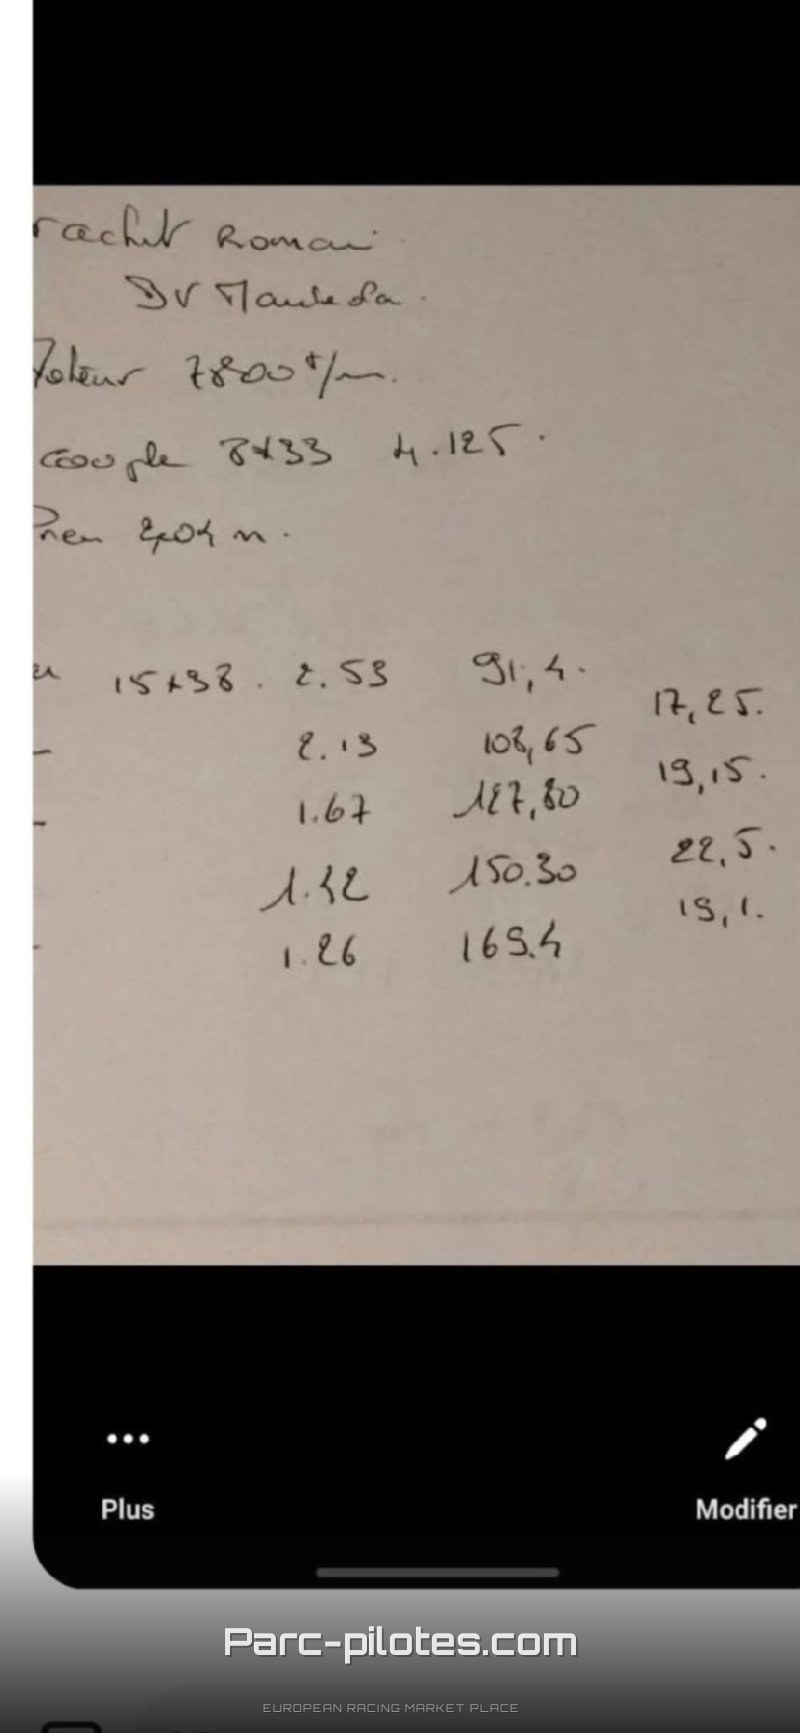 rachit Romain
BV Mauleda.
oteur 7800 t/m.
couple 8x33 4.125.
Pneu 2,04 m.
15x38. 2.53 91,4.
17,25.
2.13 108,65
19,15.
1.67 127,80
22,5.
1.42 150.30
19,1.
1.26 169.4
Plus
Modifier
Parc-pilotes.com
EUROPEAN RACING MARKET PLACE